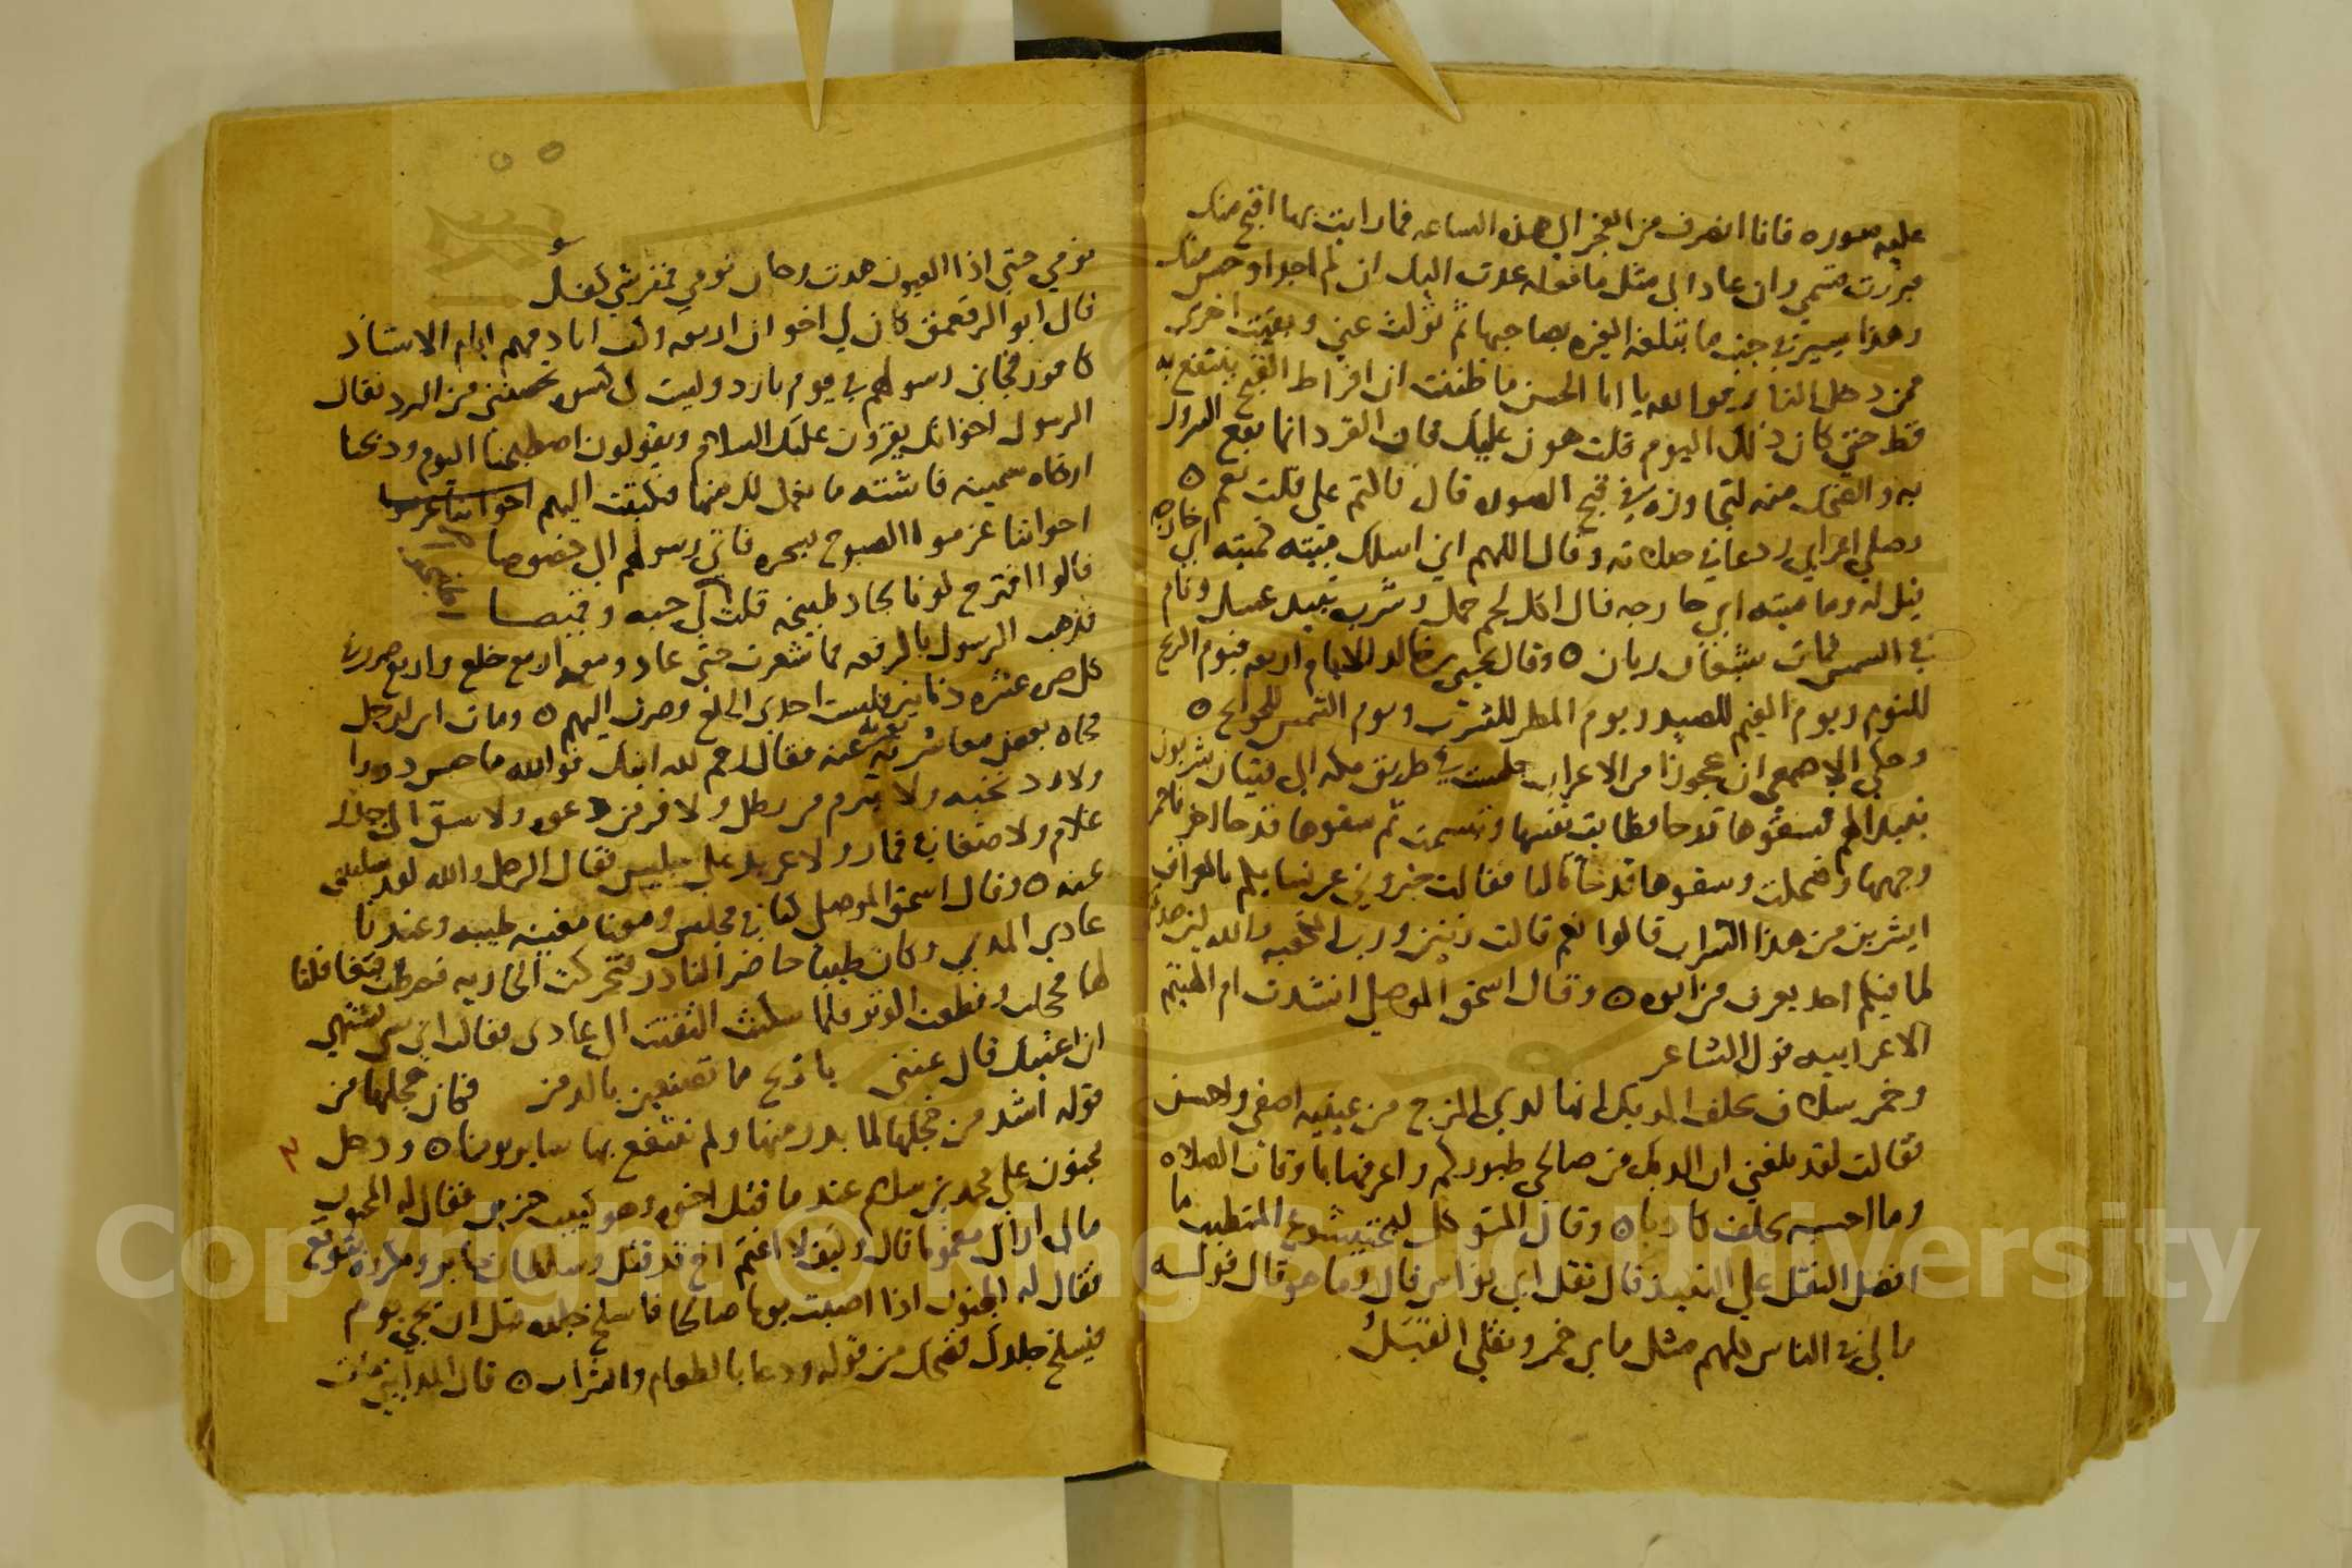 عليه صوره فانا انصرف من الفجر الي هذه الساعه فما رايت بها اقبح منك
فبررت قسمي وان عاد الي مثل ما فعله عدت اليك ان لم اجد اوحش منك
وهذا يسير في جنب ما تبلغه الغيره بصاحبها ثم تولت عني وبقيت اخزي
ممن دخل النار فوالله يا ابا الحسن ما ظننت ان افراط القبح ينتفع به
قط حتي كان ذلك اليوم قلت هون عليك فان القرد انما يقع السرور
به والضحك منه لتجاوزه في قبح الصوره قال فاكتم علي قلت نعم ه
وصلي اعرابي ودعا في صلاته وقال اللهم اني اسالك ميته كميته ابي خارجه
قيل له وما ميته ابي خارجه قال اكل لحم حمل وشرب نبيذ عسل ونام
في الشمس فمات شبعان ريان ه وقال يحيي بن خالد الايام اربعه فيوم الريح
للنوم ويوم الغيم للصيد ويوم المطر للشرب ويوم الشمس للحوايج ه
وحكي الاصمعي ان عجوزا من الاعراب جلست في طريق مكه الي فتيان يشربون
نبيذا لهم فسقوها قدحا فطابت نفسها وتبسمت ثم سقوها قدحا اخر فاحمر
وجهها وضحكت وسقوها قدحا ثالثا فقالت خبروني عن نسايكم بالعراق
ايشربن من هذا الشراب قالوا نعم قالت زنين ورب الكعبه والله لين صدقتم
لما فيكم احد يعرف من ابوه ه وقال اسحق الموصلي انشدت ام الهيثم
الاعرابيه قول الشاعر
وخمر سلاف يحلف الديك انها لدي المزج من عينيه اصفي واحسن
فقالت لقد بلغني ان الديك من صالحي طيوركم واعرفها باوقات الصلاه
وما احسبه يحلف كاذبا ه وقال المتوكل لبختيشوع المتطبب ما
افضل النقل علي النبيذ قال نقل ابي نواس قال وما هو قال قوله
مالي في الناس كلهم مثل مايي خمر ونقلي القبل
نومي حتي اذا العيون هدت وحان نومي فمفرشي كفل
قال ابو الرقعمق كان لي اخوان اربعه وكنت انادمهم ايام الاستاذ
كافور فجاني رسولهم في يوم بارد وليست لي كسوه تحصنني من البرد فقال
الرسول اخوانك يقرون عليك السلام ويقولون اصطبحنا اليوم وذبحنا
شاه سمينه فاشتهِ ما نعمل لك منها فكتبت اليهم
اخواننا عزموا الصبوح بسحره فاتي رسولهم الي خصوصا
قالوا اقترح لونا يجاد طبيخه قلت اطبخوا لي جبه وقميصا
فذهب الرسول بالرقعه فما شعرت حتي عاد ومعه اربع خلع واربع صرر في
كل صره عشره دنانير فلبست احدي الخلع وصرت اليهم ه ومات ابن لرجل
فجاه بعض معاشريه يعزيه عنه فقال رحم الله ابنك فوالله ما حبس دورا
ولا رد نخبه ولا تبرم من رطل ولا فر من دعوه ولا سبق الي جدر
غلام ولا صغا في قمار ولا عربد علي جليس فقال الرجل والله لقد سليتني
عنه ه وقال اسحق الموصلي كنا في مجلس ومعنا مغنيه طيبه وعندنا
عادي المدني وكان طيبا حاضر النادر فتحركت الجاريه فضرطت فتغافلنا
لها فخجلت وقطعت الوتر فلما سكنت التفتت الي عادي فقالت اي شي تشتهي
ان اغنيك قال غنني يا ريح ما تصنعين بالدمن فكان خجلها من
قوله اشد من خجلها لما بدر منها ولم ننتفع بها ساير يومنا ه ودخل
مجنون علي محمد بن سلام عند ما قتل اخوه وهو كييب حزين فقال له المجنون
مالي اراك مغموما قال وكيف لا اغتم اخ قد قتل وسلطان جاير ومكروه يتوقع
فقال له المجنون اذا اصبت يوما صالحا فاسلخ جلده قبل ان يجي يوم
فيسلخ جلدك فضحك من قوله ودعا بالطعام والشراب ه قال المدايني مات